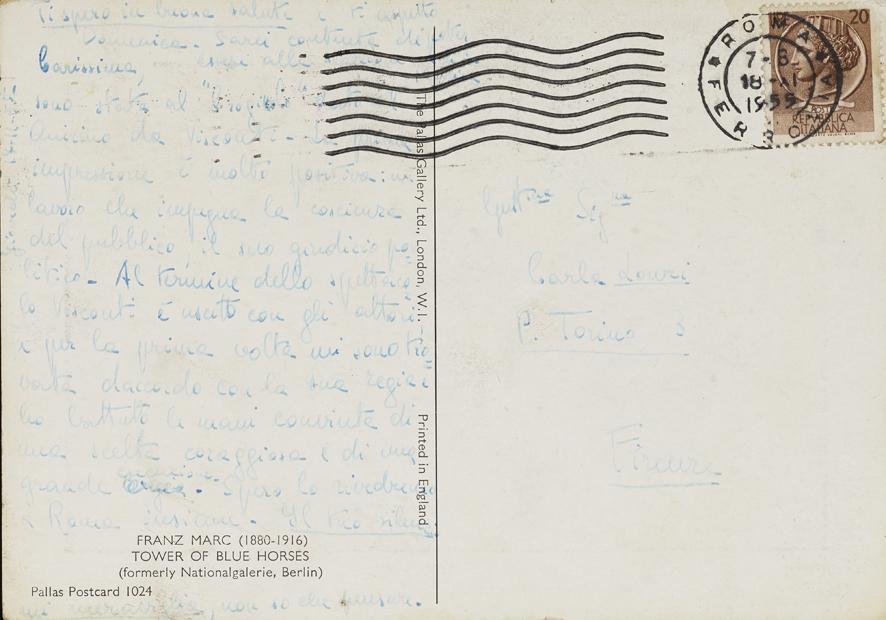 Ti spero in buona salute e ti aspetto
Domenica. Sarei contenta di poter
Carissima,
sono stata al "Crogiolo"
da Visconti. La prima
impressione è molto positiva: un
lavoro che impegna la coscienza
del pubblico, il suo giudizio po=
litico. Al termine dello spettaco=
lo Visconti è uscito con gli attori
e per la prima volta mi sono tro=
vata daccordo con la sua regia e
ho battuto le mani convinta di
una scelta coraggiosa e di una
grande
esecuzione. Spero lo rivedremo
a Roma insieme. Il tuo
mi meraviglia, non so che pensare.
FRANZ MARC (1880-1916)
TOWER OF BLUE HORSES
(formerly Nationalgalerie, Berlin)
Pallas Postcard 1024
The Pallas Gallery Ltd., London, W.1.
Printed in England
ROMA
FERRO
7-8
1955
20
REPUBBLICA
ITALIANA
Gent.ma Sig.na
Carla
P. Torino 3
Firenze